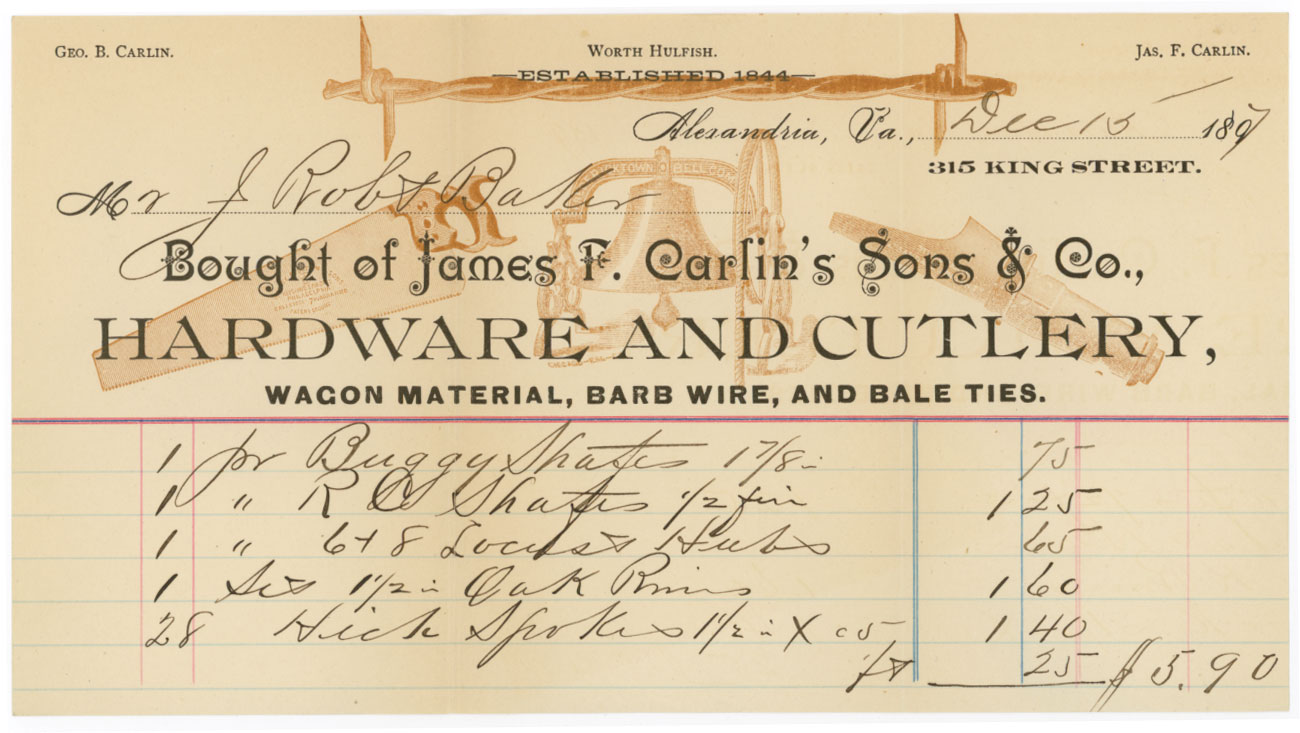 GEO. B. CARLIN. WORTH HULFISH. JAS. F. CARLIN.
—ESTABLISHED 1844—
Alexandria, Va., Dec 15 1897
315 KING STREET.
Mr J Robt Baker
Bought of James F. Carlin's Sons & Co.,
HARDWARE AND CUTLERY,
WAGON MATERIAL, BARB WIRE, AND BALE TIES.
1 pr Buggy Shafts 1 7/8 in 75
1 " R C Shafts 1 1/2 fin 1 25
1 " 6 + 8 Locust Hubs 65
1 Set 1 1/2 in Oak Rims 1 60
28 Hick Spokes 1 1/2 in X c 5 1 40
25 $5.90